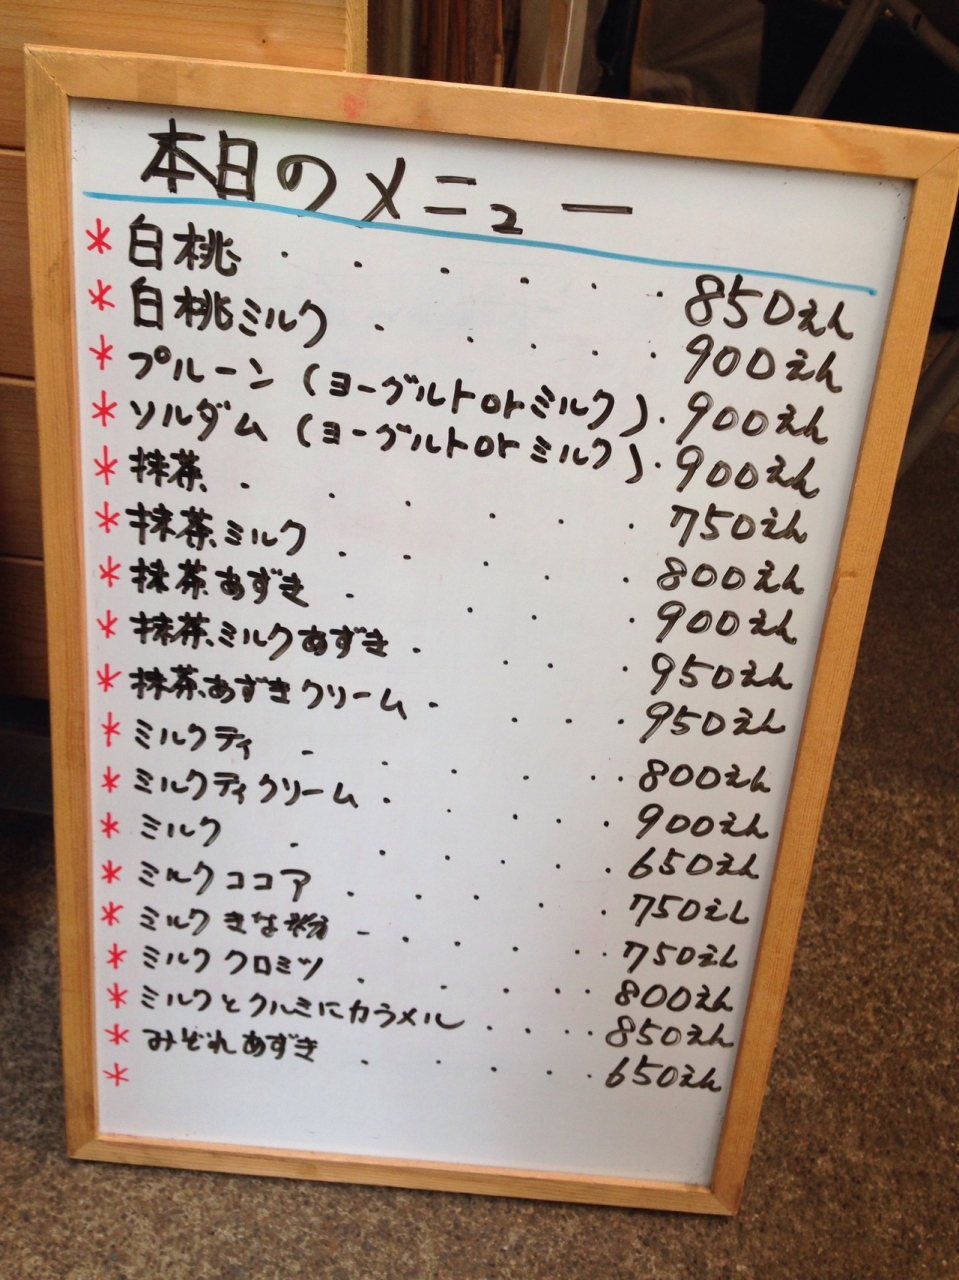 本日のメニュー
* 白桃 ・・・・・・・ 850えん
* 白桃ミルク ・・・・・ 900えん
* プルーン (ヨーグルトorミルク)・ 900えん
* ソルダム (ヨーグルトorミルク)・ 900えん
* 抹茶 ・・・・・・ 750えん
* 抹茶ミルク ・・・・・ 800えん
* 抹茶あずき ・・・・ 900えん
* 抹茶ミルクあずき ・・・・ 950えん
* 抹茶あずきクリーム ・・・・ 950えん
* ミルクティ ・・・・・・ 800えん
* ミルクティクリーム ・・・・・ 900えん
* ミルク ・・・・・・ 650えん
* ミルクココア ・・・・・・ 750えん
* ミルクきな粉 ・・・・・・・ 750えん
* ミルククロミツ ・・・・・ 800えん
* ミルクとクルミにカラメル ・・・・・ 850えん
* みぞれあずき ・・・・・ 650えん
*